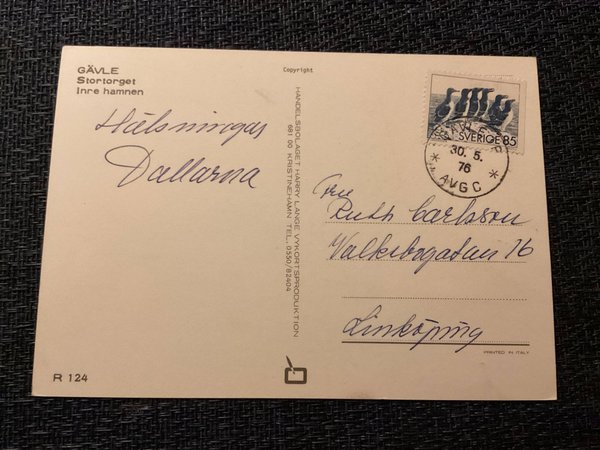 GÄVLE
Stortorget
Inre hamnen
Copyright
Hälsningar
Dallarna
HANDELSBOLAGET HARRY LANGE VYKORTSPRODUKTION
681 00 KRISTINEHAMN TEL. 0550/82404
SVERIGE 85
30. 5.
76
* AVGC *
Fru
Ruth Carlsson
Valkebogatan 16
Linköping
PRINTED IN ITALY
R 124